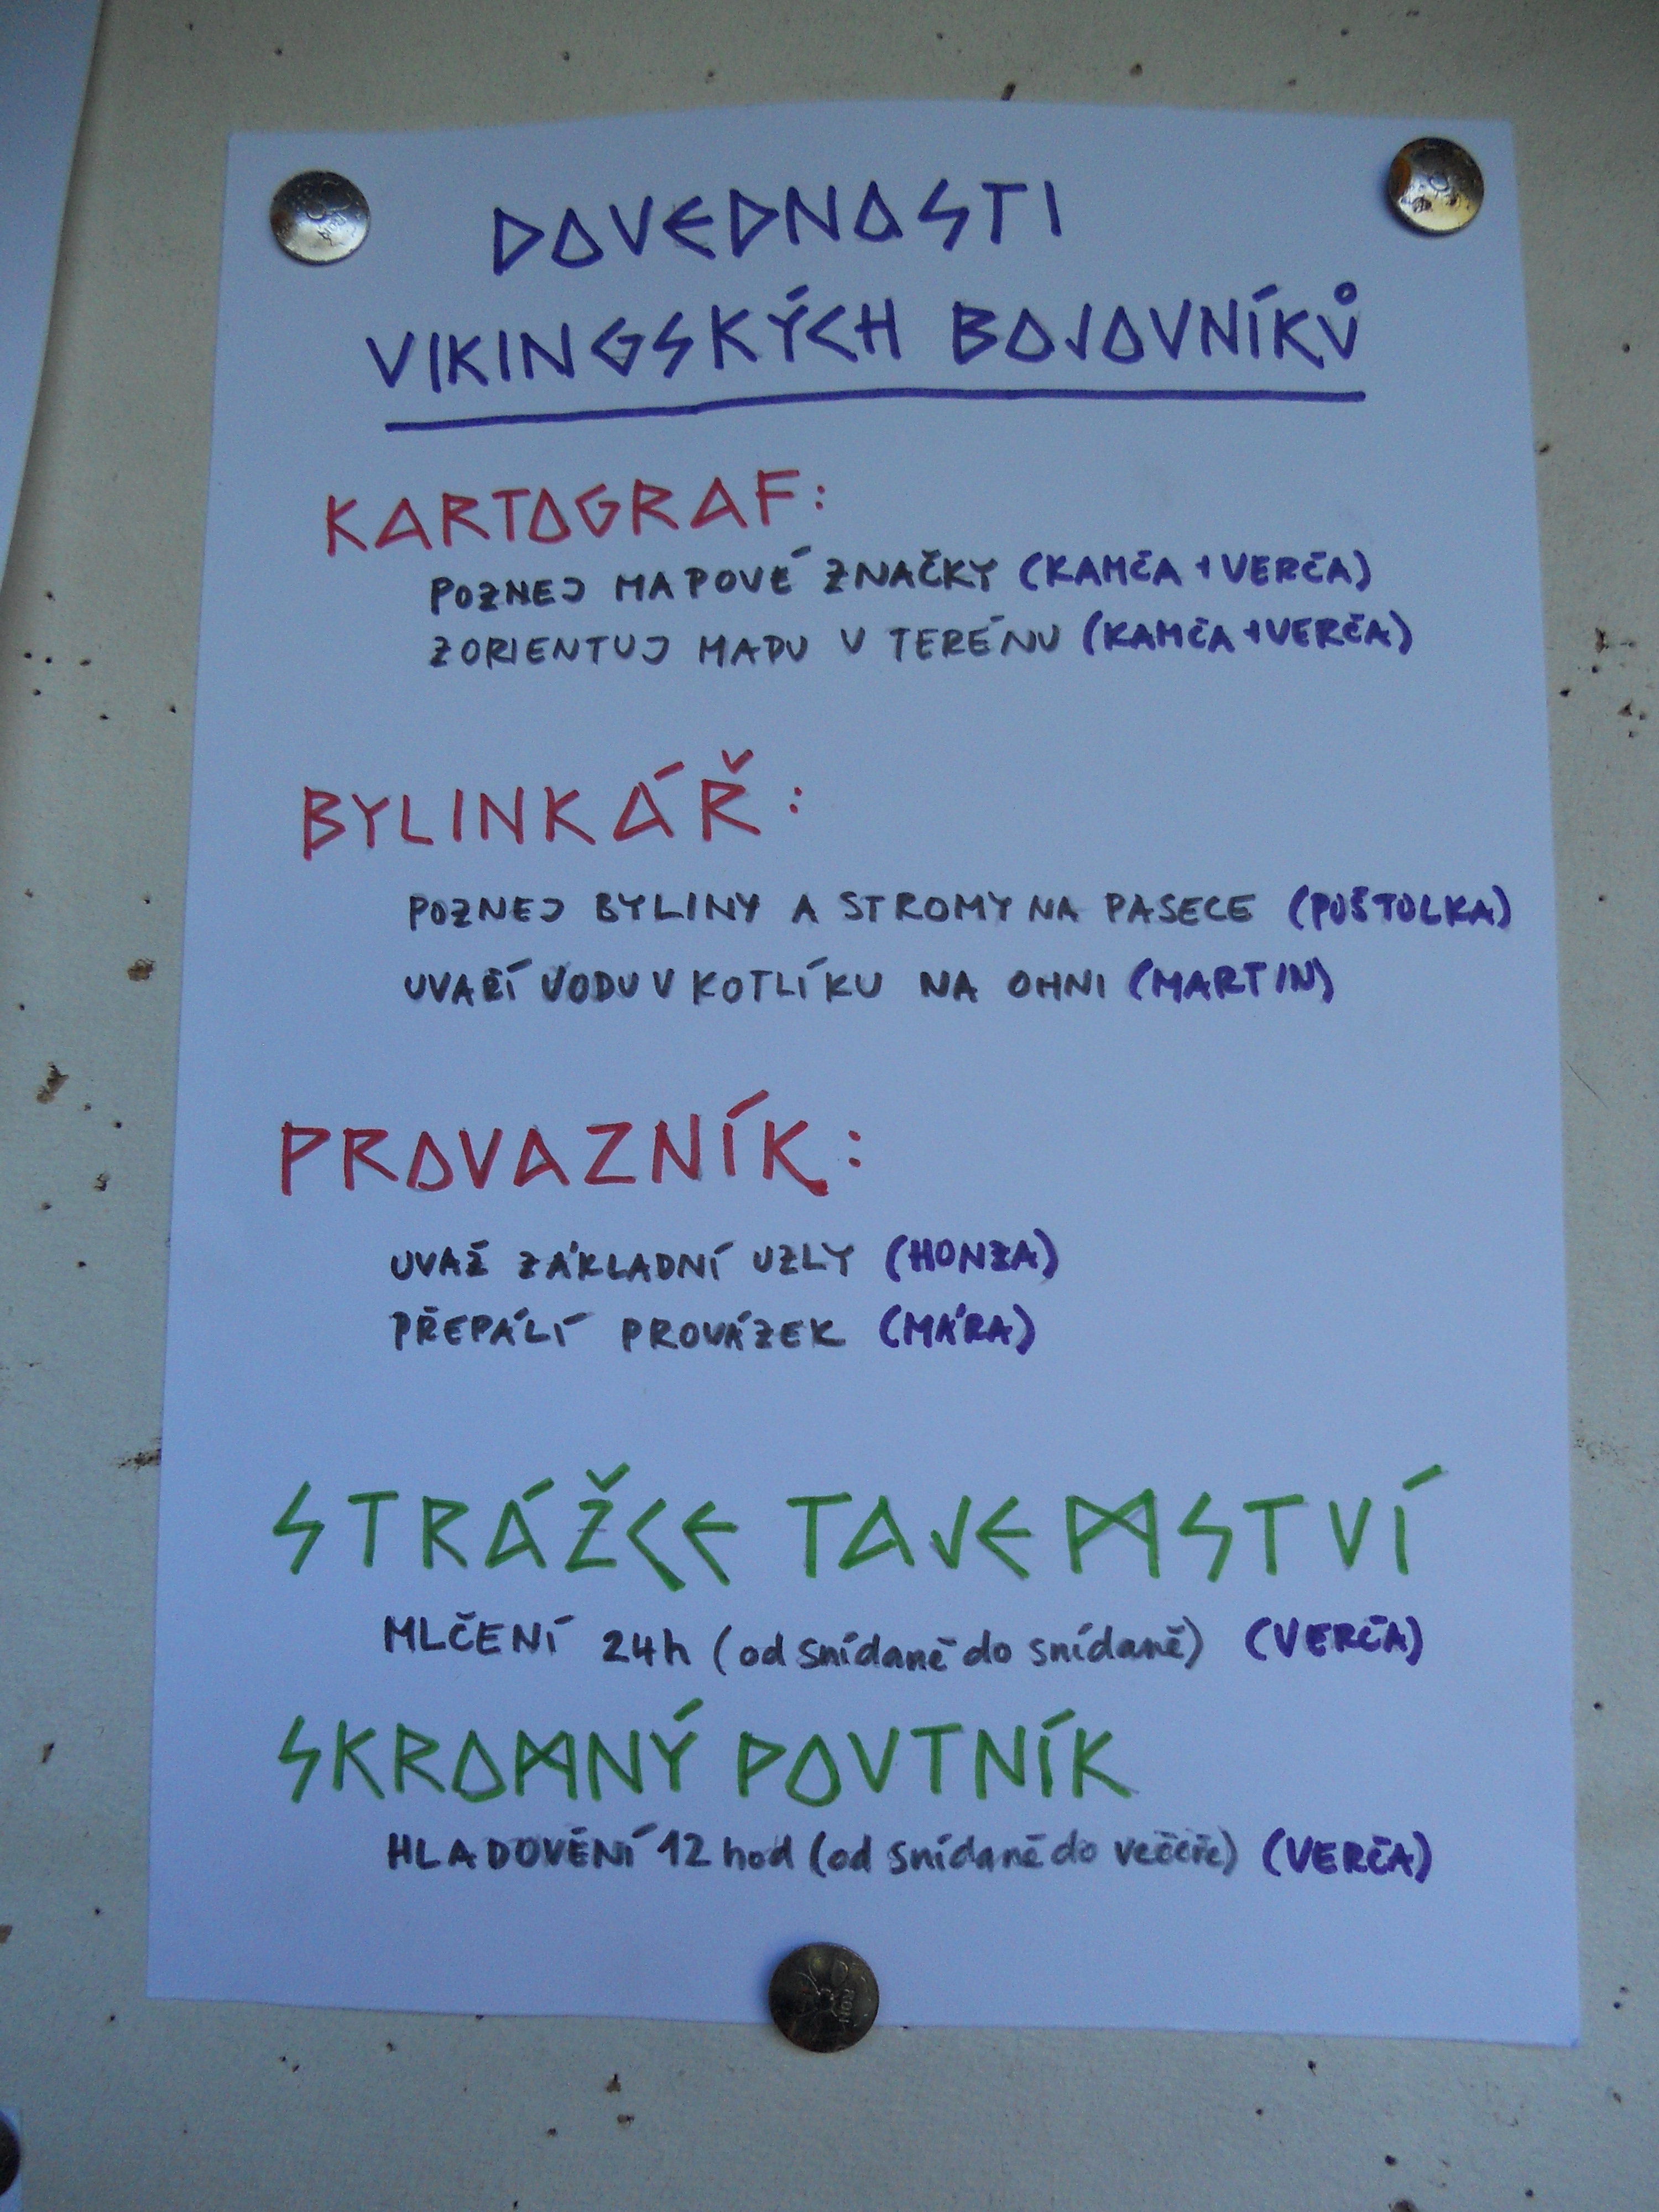 DOVEDNOSTI
VIKINGSKÝCH BOJOVNÍKŮ
KARTOGRAF:
POZNEJ MAPOVÉ ZNAČKY (KAMČA + VERČA)
ZORIENTUJ MAPU V TERÉNU (KAMČA + VERČA)
BYLINKÁŘ:
POZNEJ BYLINY A STROMY NA PASECE (POŠTOLKA)
UVAŘÍ VODU V KOTLÍKU NA OHNI (MARTIN)
PROVAZNÍK:
UVAŽ ZÁKLADNÍ UZLY (HONZA)
PŘEPÁLÍ PROVÁZEK (MÁRA)
STRÁŽCE TAJEMSTVÍ
MLČENÍ 24h (od snídaně do snídaně) (VERČA)
SKROMNÝ POUTNÍK
HLADOVĚNÍ 12 hod (od snídaně do večeře) (VERČA)